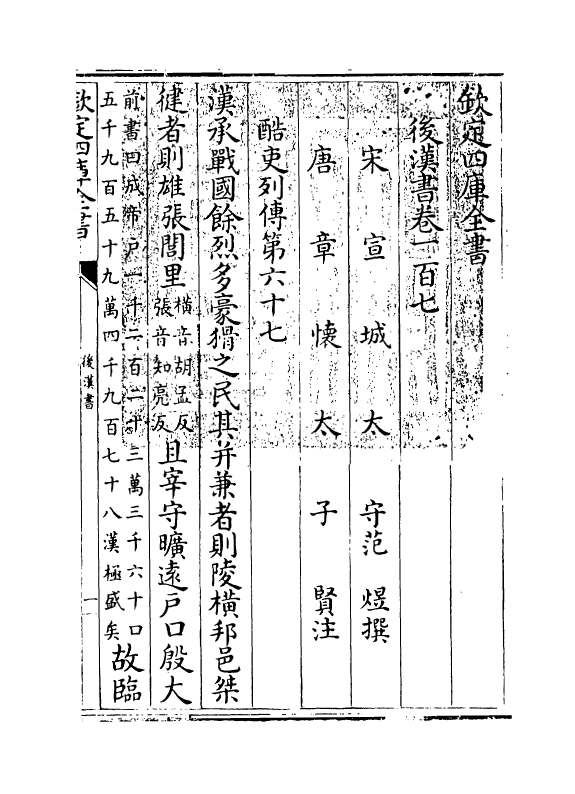 欽定四庫全書
後漢書卷一百七
宋宣城太守范煜撰
唐章懷太子賢注
酷吏列傳第六十七
漢承戰國餘烈多豪猾之民其并兼者則陵橫邦邑桀
健者則雄張閭里橫音胡孟反張音知亮反且宰守曠遠戶口殷大
前書曰成帝戶一千二百二十三萬三千六十口
五千九百五十九萬四千九百七十八漢極盛矣故臨
欽定四庫全書
後漢書
一